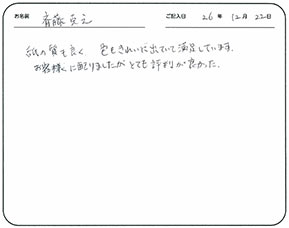 お名前 斉藤克之 ご記入日 26年12月22日
紙の質も良く 色もきれいに出ていて満足しています。
お客様に配りましたがとても評判が良かった。